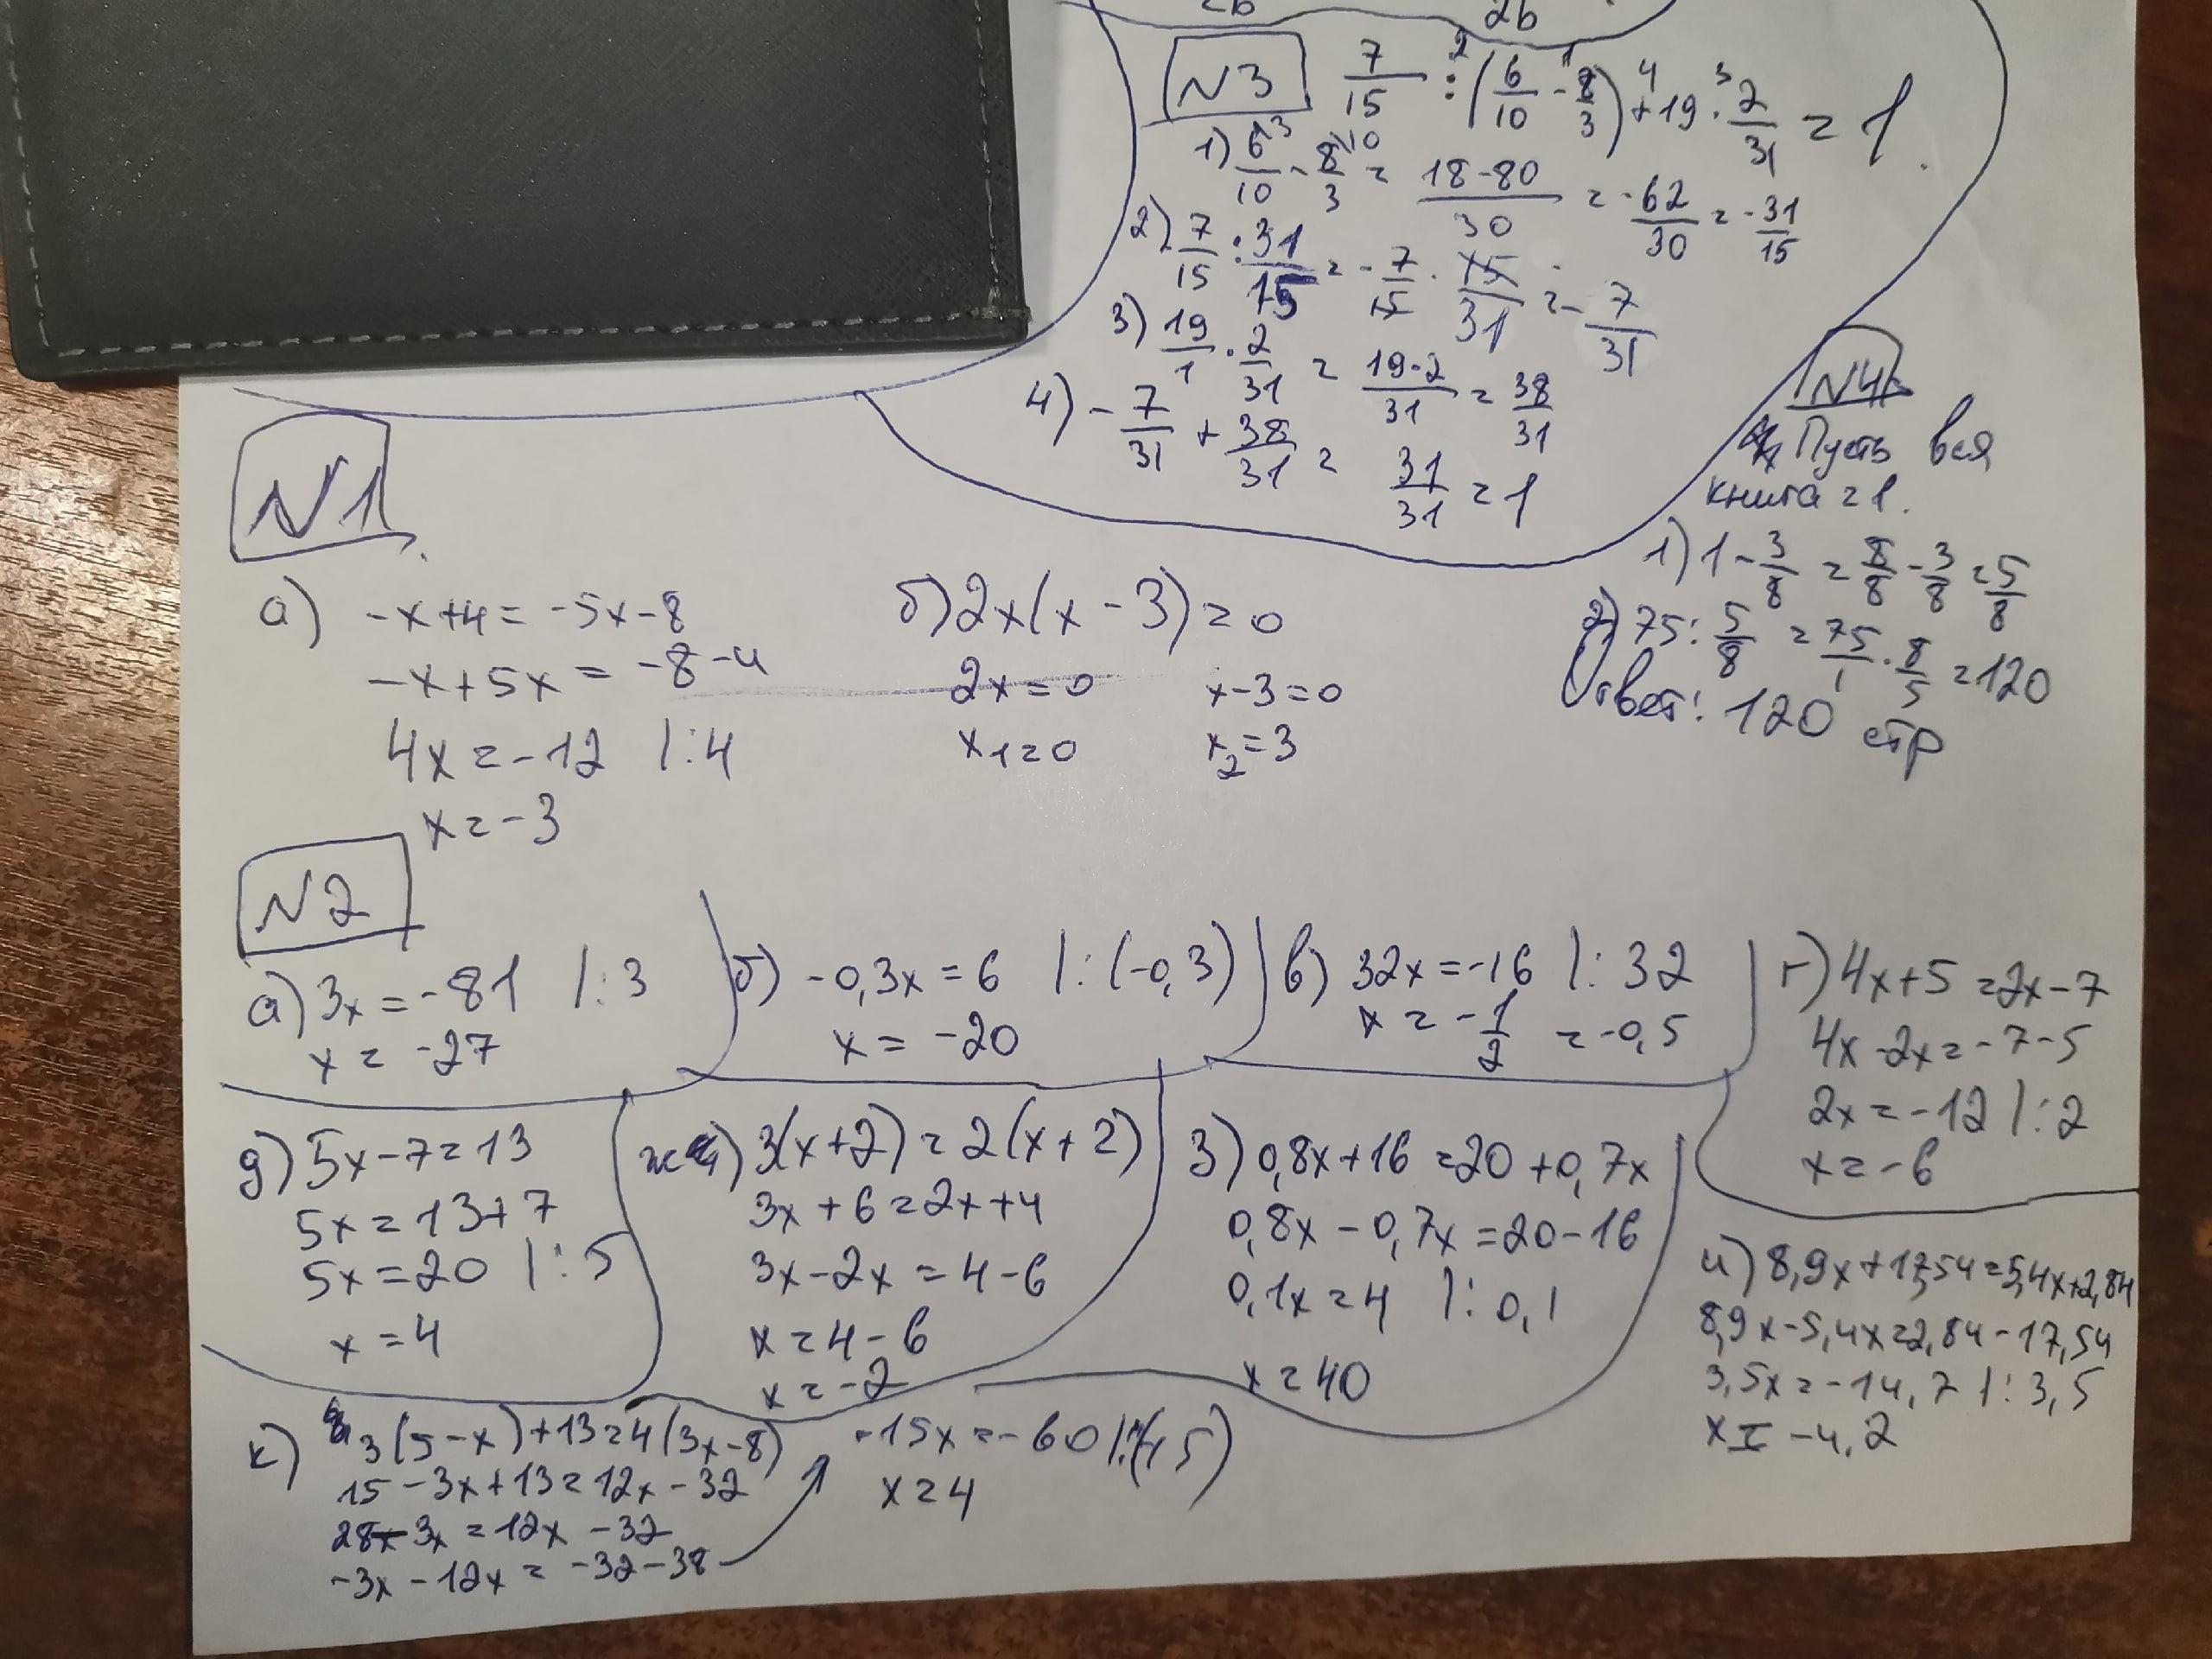 2b 2b
N3 7/15 : (6/10 - 8/3) + 19 · 2/31 = 1
1) 6/10 - 8/3 = (18-80)/30 = -62/30 = -31/15
2) 7/15 : 31/15 = -7/15 · 15/31 = -7/31
3) 19/1 · 2/31 = 19·2/31 = 38/31
4) -7/31 + 38/31 = 31/31 = 1
N4
Пусть вся
книга = 1.
1) 1 - 3/8 = 8/8 - 3/8 = 5/8
2) 75 : 5/8 = 75/1 · 8/5 = 120
Ответ: 120 стр
N1
а) -x+4 = -5x-8
-x+5x = -8-4
4x = -12 |:4
x = -3
б) 2x(x-3) = 0
2x = 0 x-3 = 0
x1 = 0 x2 = 3
N2
а) 3x = -81 |:3
x = -27
б) -0,3x = 6 |:(-0,3)
x = -20
в) 32x = -16 |:32
x = -1/2 = -0,5
г) 4x+5 = 2x-7
4x-2x = -7-5
2x = -12 |:2
x = -6
д) 5x-7 = 13
5x = 13+7
5x = 20 |:5
x = 4
ж) 3(x+2) = 2(x+2)
3x+6 = 2x+4
3x-2x = 4-6
x = 4-6
x = -2
з) 0,8x+16 = 20+0,7x
0,8x-0,7x = 20-16
0,1x = 4 |:0,1
x = 40
и) 8,9x+17,54 = 5,4x+2,84
8,9x-5,4x = 2,84-17,54
3,5x = -14,7 |:3,5
x = -4,2
к) 3(5-x)+13 = 4(3x-8)
15-3x+13 = 12x-32
28-3x = 12x-32
-3x-12x = -32-38
-15x = -60 |:(-15)
x = 4